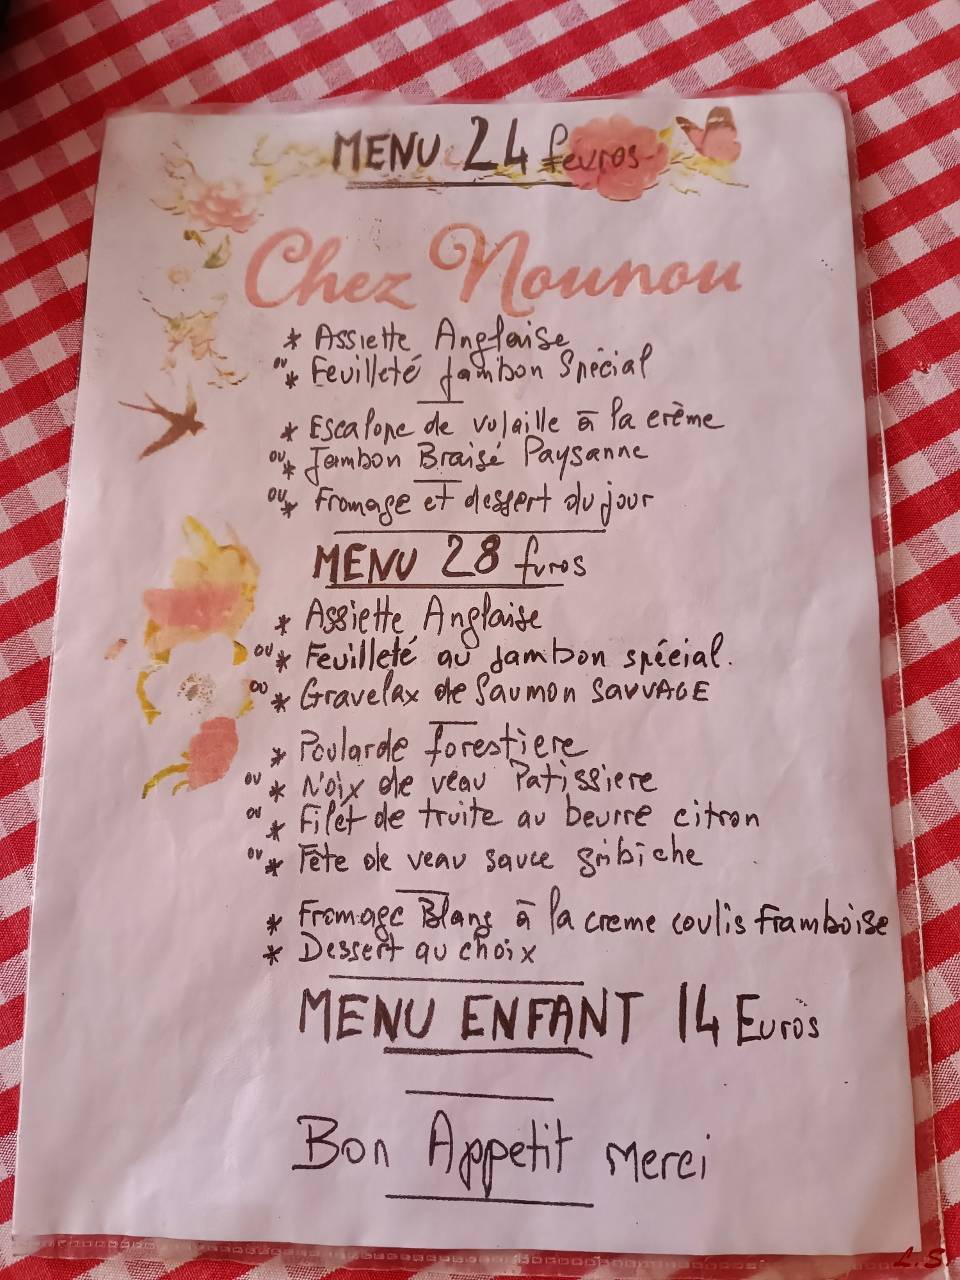 MENU 24 euros
Chez Nounou
* Assiette Anglaise
ou * Feuilleté Jambon Spécial
* Escalope de volaille à la crème
ou * Jambon Braisé Paysanne
ou * Fromage et dessert du jour
MENU 28 Euros
* Assiette Anglaise
ou * Feuilleté au Jambon spécial.
ou * Gravelax de Saumon SAUVAGE
* Poularde forestiere
ou * Noix de veau Patissiere
ou * Filet de truite au beurre citron
ou * Tête de veau sauce gribiche
* Fromage Blanc à la creme coulis Framboise
* Dessert au choix
MENU ENFANT 14 Euros
Bon Appetit Merci
L.S.